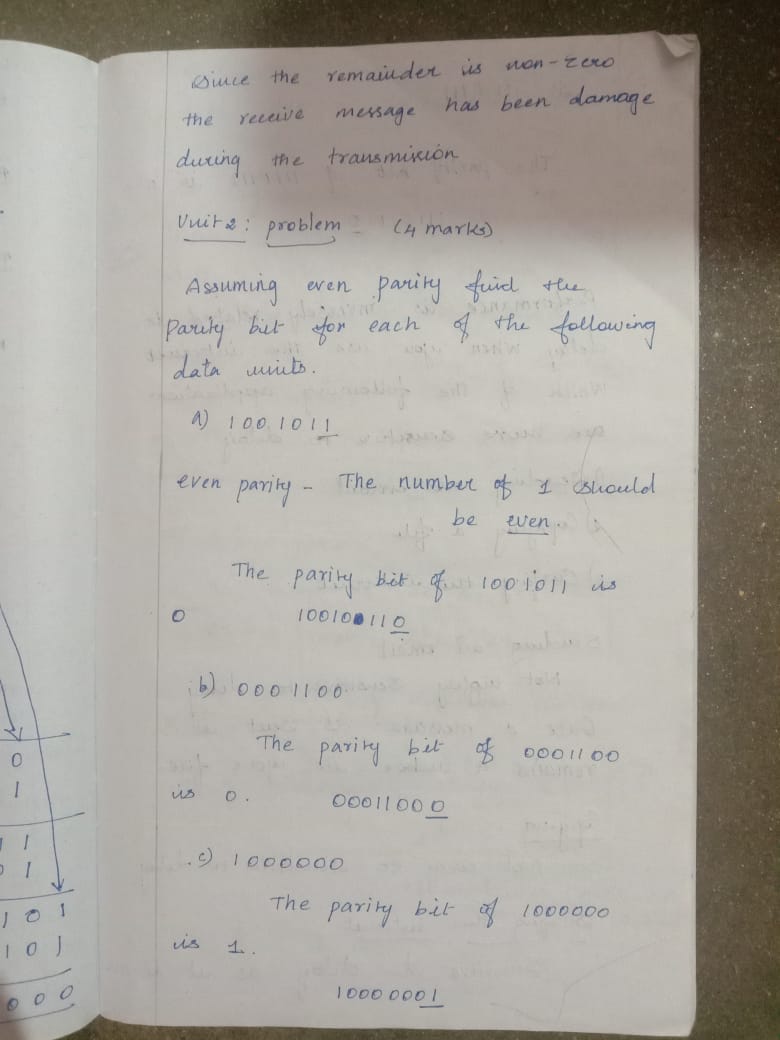 since the remainder is non-zero
the receive message has been damage
during the transmision
Unit 2: problem (4 marks)
Assuming even parity find the
parity bit for each of the following
data units.
a) 1001011
even parity - The number of 1 should
be even.
The parity bit of 1001011 is
0 10010110
b) 0001100
The parity bit of 0001100
is 0. 00011000
c) 1000000
The parity bit of 1000000
is 1.
10000001
0
1
1 1
0 1
1 0 1
1 0 1
0 0 0